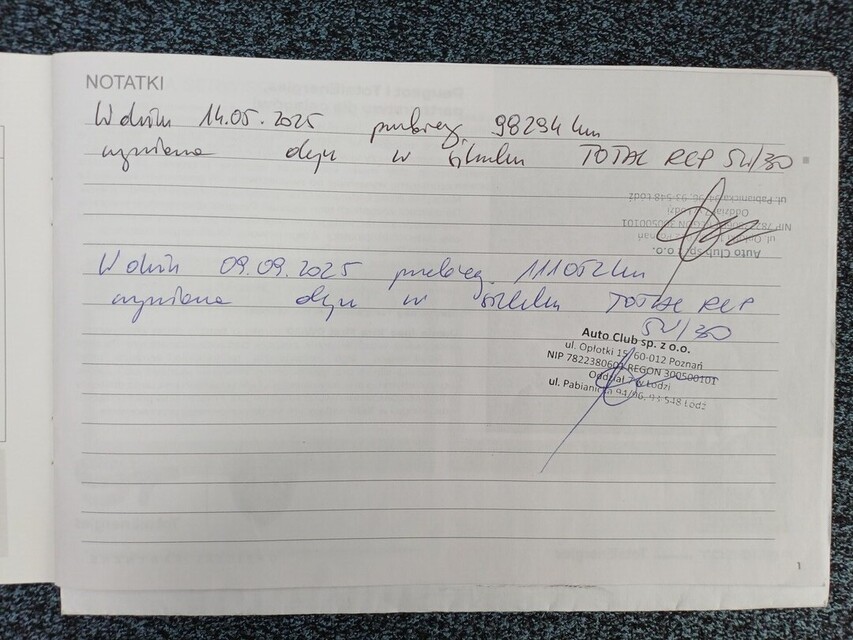 NOTATKI
W dniu 14.05.2025 przebieg 98294 km
wymiana oleju w silniku TOTAL RCP 5W/30
ul. Pabianicka 94/96, 93-548 Łódź
Oddział 7 w Łodzi
REGON 300500101
ul. Opłotki 15, Poznań
Auto Club sp. z o.o.
W dniu 09.09.2025 przebieg 111052 km
wymiana oleju w silniku TOTAL RCP
5W/30
Auto Club sp. z o.o.
ul. Opłotki 15, 60-012 Poznań
NIP REGON 300500101
Oddział 7 w Łodzi
ul. Pabianicka 94/96, 93-548 Łódź
1